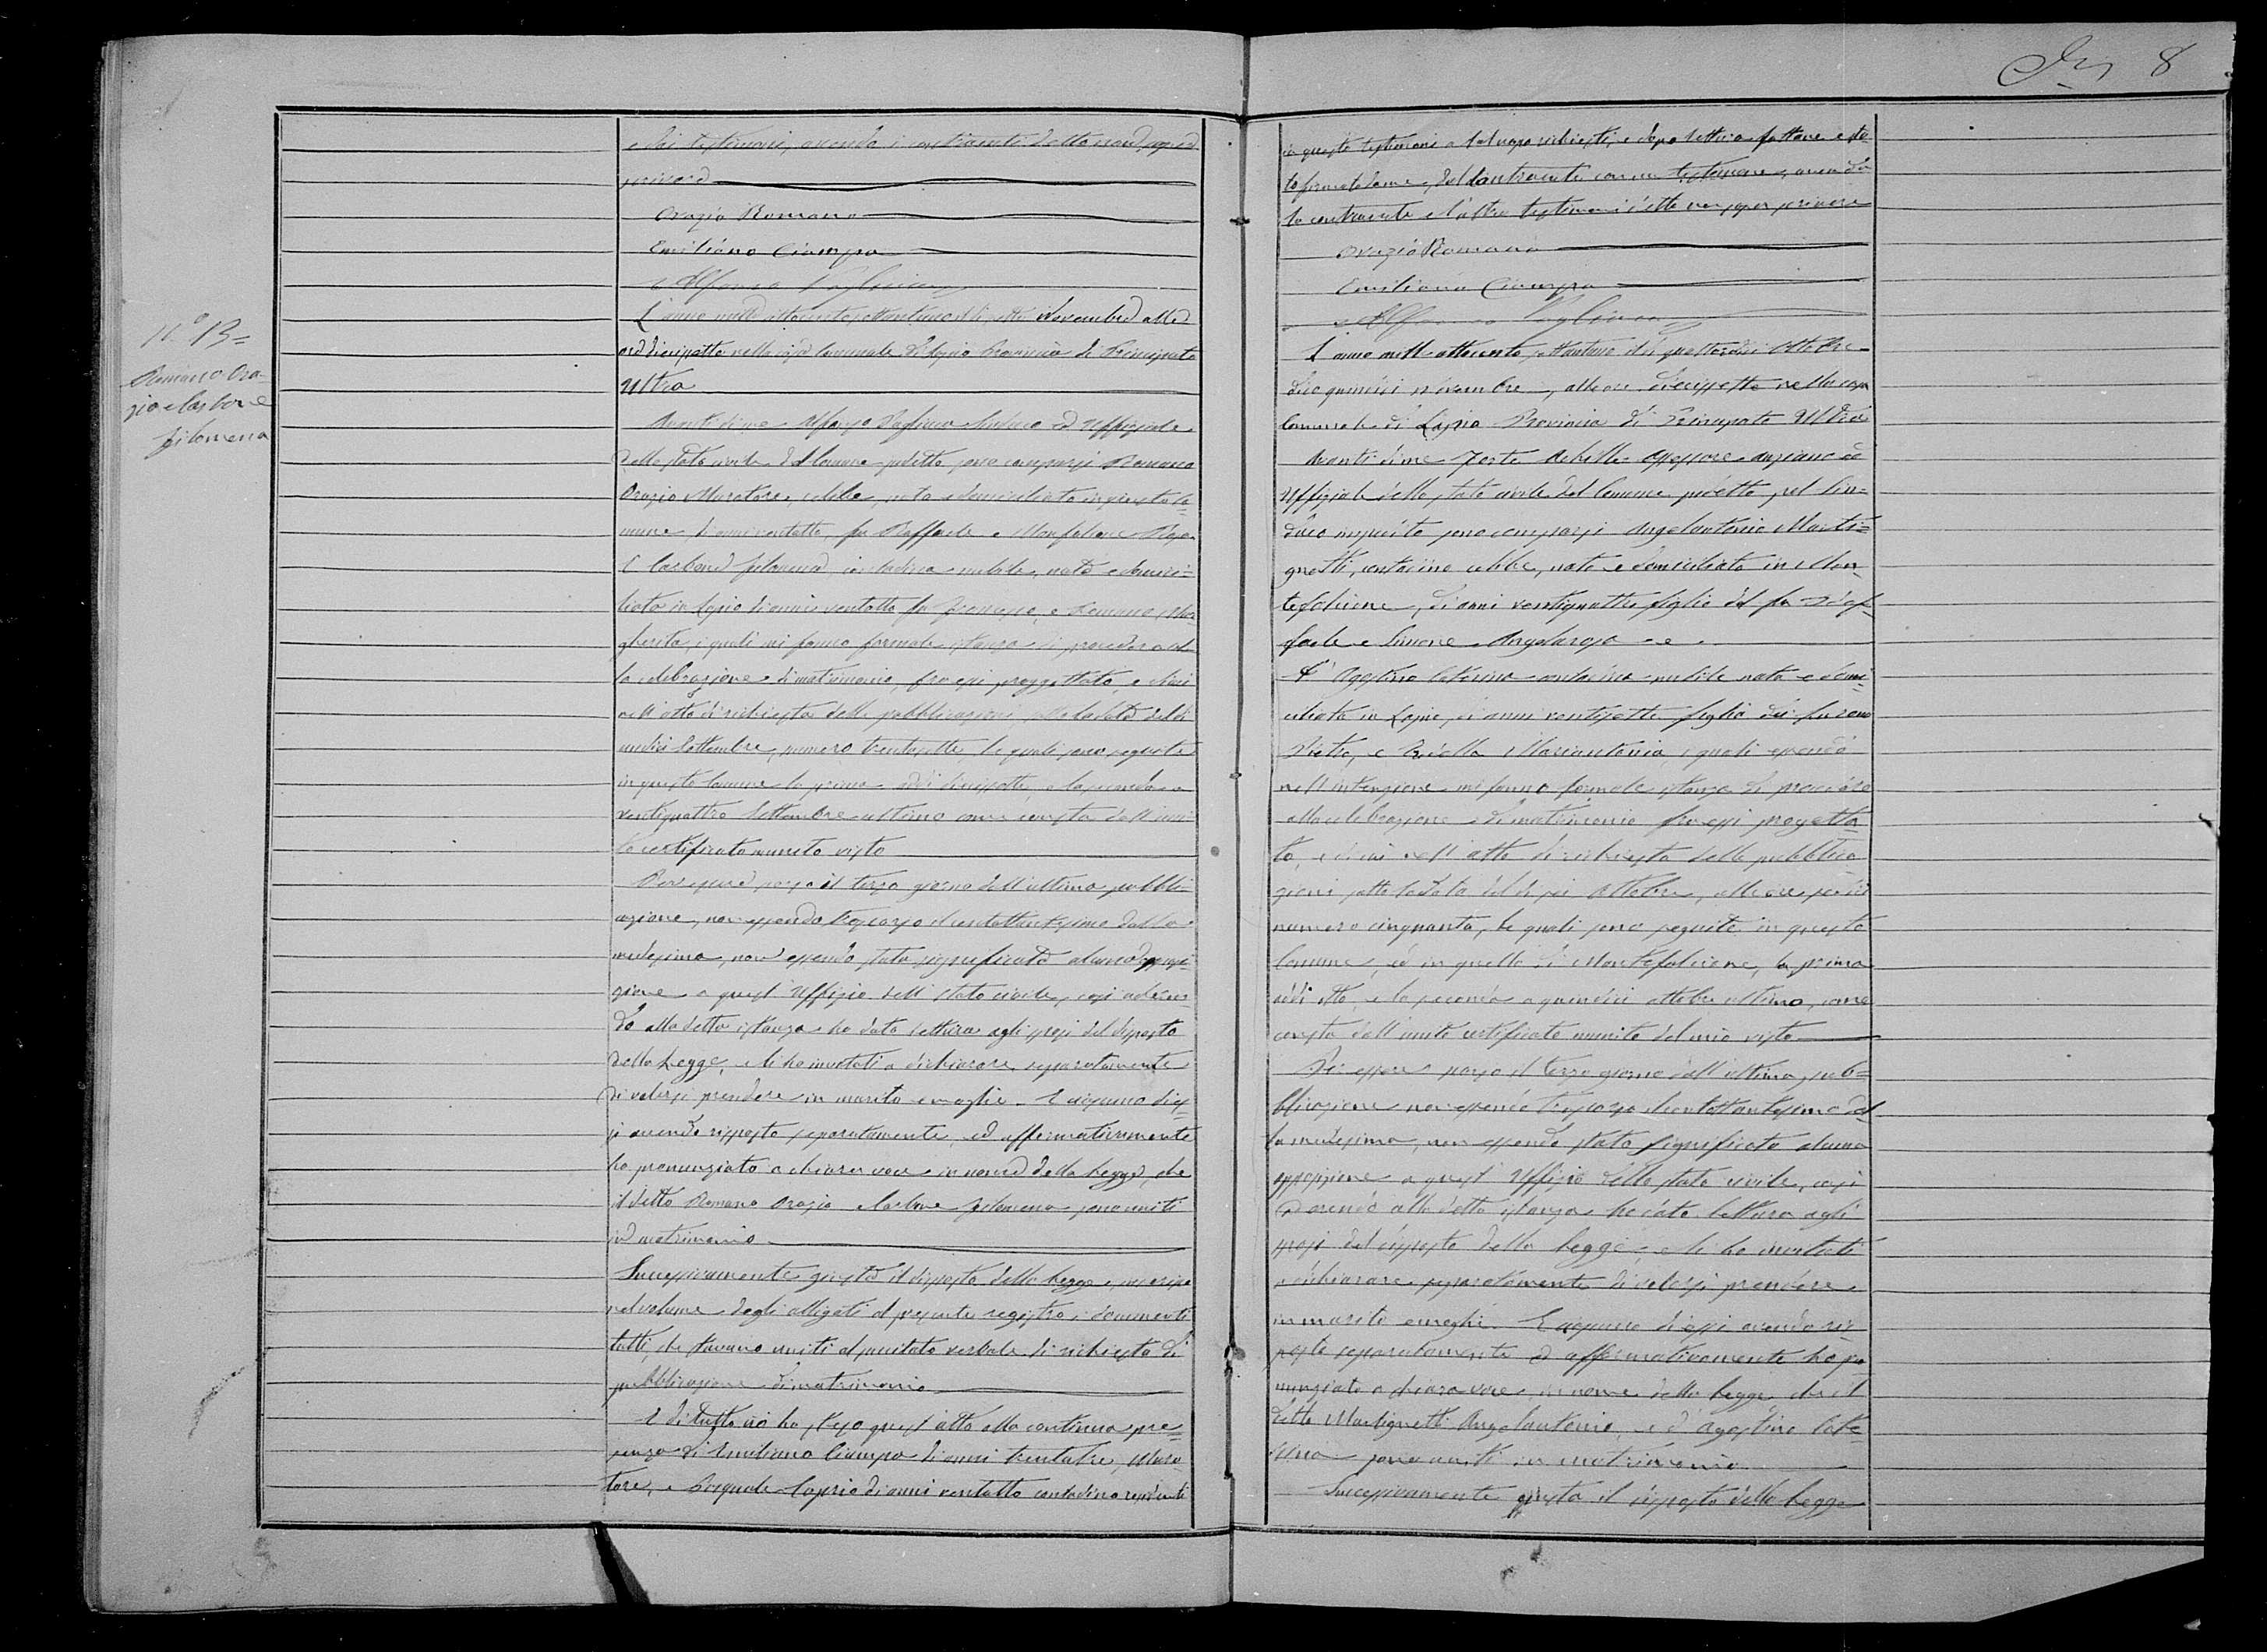 8
N.° 13=
Romano Ora-
zio e Carbone
filomena
e dai testimoni, avendo i contraenti detto non saper
firmare
Orazio Romano
Emiliano Ciampa
Alfonso
L'anno mille ottocento settantuno il dì otto Novembre alle
ore diecisette nella casa Comunale di Lapio Provincia di Principato
Ultra
Avanti di me Alfonso Sindaco ed Uffiziale
dello stato civile del Comune sudetto, sono comparsi Romano
Orazio Muratore, celibe, nato e domiciliato in questo Co=
mune di anni ventotto, fu Raffaele e Rosa
E Carbone filomena, contadina nubile, nata e domici=
liata in Lapio di anni ventotto fu e Romano Mar
gherita, i quali mi fanno formale istanza di procedere al
la celebrazione di matrimonio, fra essi proggettato, e di cui
nell'atto di richiesta delle pubblicazioni, del dì
undici Settembre, numero trentasette, le quali sono seguite
in questo Comune la prima addì diecisette, e la seconda a
ventiquattro Settembre ultimo come consta dall'uni=
to certificato munito visto
Per essere scorso il terzo giorno dell'ultima pubbli=
cazione, non essendo trascorso il centottantesimo dalla
medesima, non essendo stata significata alcuna opposi=
zione a quest'Uffizio dell stato civile, così aderen=
do alla detta istanza ho dato lettura agli sposi del disposto
della Legge, e li ho invitati a dichiarare separatamente
di volersi prendere in marito e moglie. E ciascuno di es=
si avendo risposto separatamente, ed affermativamente
ho pronunziato a chiara voce in nome della Legge, che
il detto Romano Orazio e Carbone filomena sono uniti
in matrimonio
Successivamente giusta il disposto della Legge, ho
nel volume degli alligati al presente registro i documenti
tutti, che stavano uniti al verbale di richiesta di
pubblicazione di matrimonio
E di tutto ciò ho steso quest'atto alla continua pre=
senza di Emiliano Ciampa di anni trentatre, Mura=
tore, e Pasquale Caprio di anni ventotto contadino residenti
in questo testimoni a tal uopo richiesti, e dopo lettura fattane è sta
to firmato da me, dal Contraente con un testimone, avendo
la contraente e l'altro testimonio detto non saper firmare
Orazio Romano
Emiliano Ciampa
Alfonso
L'anno mille ottocento settantuno il dì quattordici Ottobre
dico quindici novembre, alle ore diecisette nella casa
Comunale di Lapio Provincia di Principato Ultra
Avanti di me Forte Achille Assessore anziano ed
Uffiziale dello stato civile del Comune sudetto, pel Sin=
daco impedito sono comparsi Angelantonio Marti=
gnetti, contadino celibe, nato e domiciliato in Mon=
tefalcione, di anni ventiquattro figlio del fu Raf=
faele e Simone Angelarosa
D'Agostino Caterina contadina nubile nata e domi=
ciliata in Lapio, di anni ventisette figlia dei furono
Pietro, e Mariantonia, i quali essendo
nell'intenzione mi fanno formale istanza di procedere
alla celebrazione di matrimonio fra essi progetta=
to, e di cui nell'atto di richiesta delle pubblica
zioni sotto la data del dì sei Ottobre, alle ore sedici
numero cinquanta, le quali sono seguite in questo
Comune, ed in quello di Montefalcione, la prima
addì otto, e la seconda a quindici ottobre ultimo, come
consta dall'unito certificato munito del mio visto
Per essere scorso il terzo giorno dell'ultima pub=
blicazione non essendo trascorso il centottantesimo dal
la medesima, non essendo stata significata alcuna
opposizione a quest'Uffizio dello stato civile, così
aderendo alla detta istanza ho dato lettura agli
sposi del disposto della Legge, e li ho invitati
a dichiarare separatamente di volersi prendere
in marito e moglie. E ciascuno di essi avendo ris=
posto separatamente ed affermativamente ho pro
nunziato a chiara voce in nome della Legge, che il
detto Martignetti Angelantonio, e d'Agostino Cate=
rina sono uniti in matrimonio
Successivamente giusta il disposto della Legge